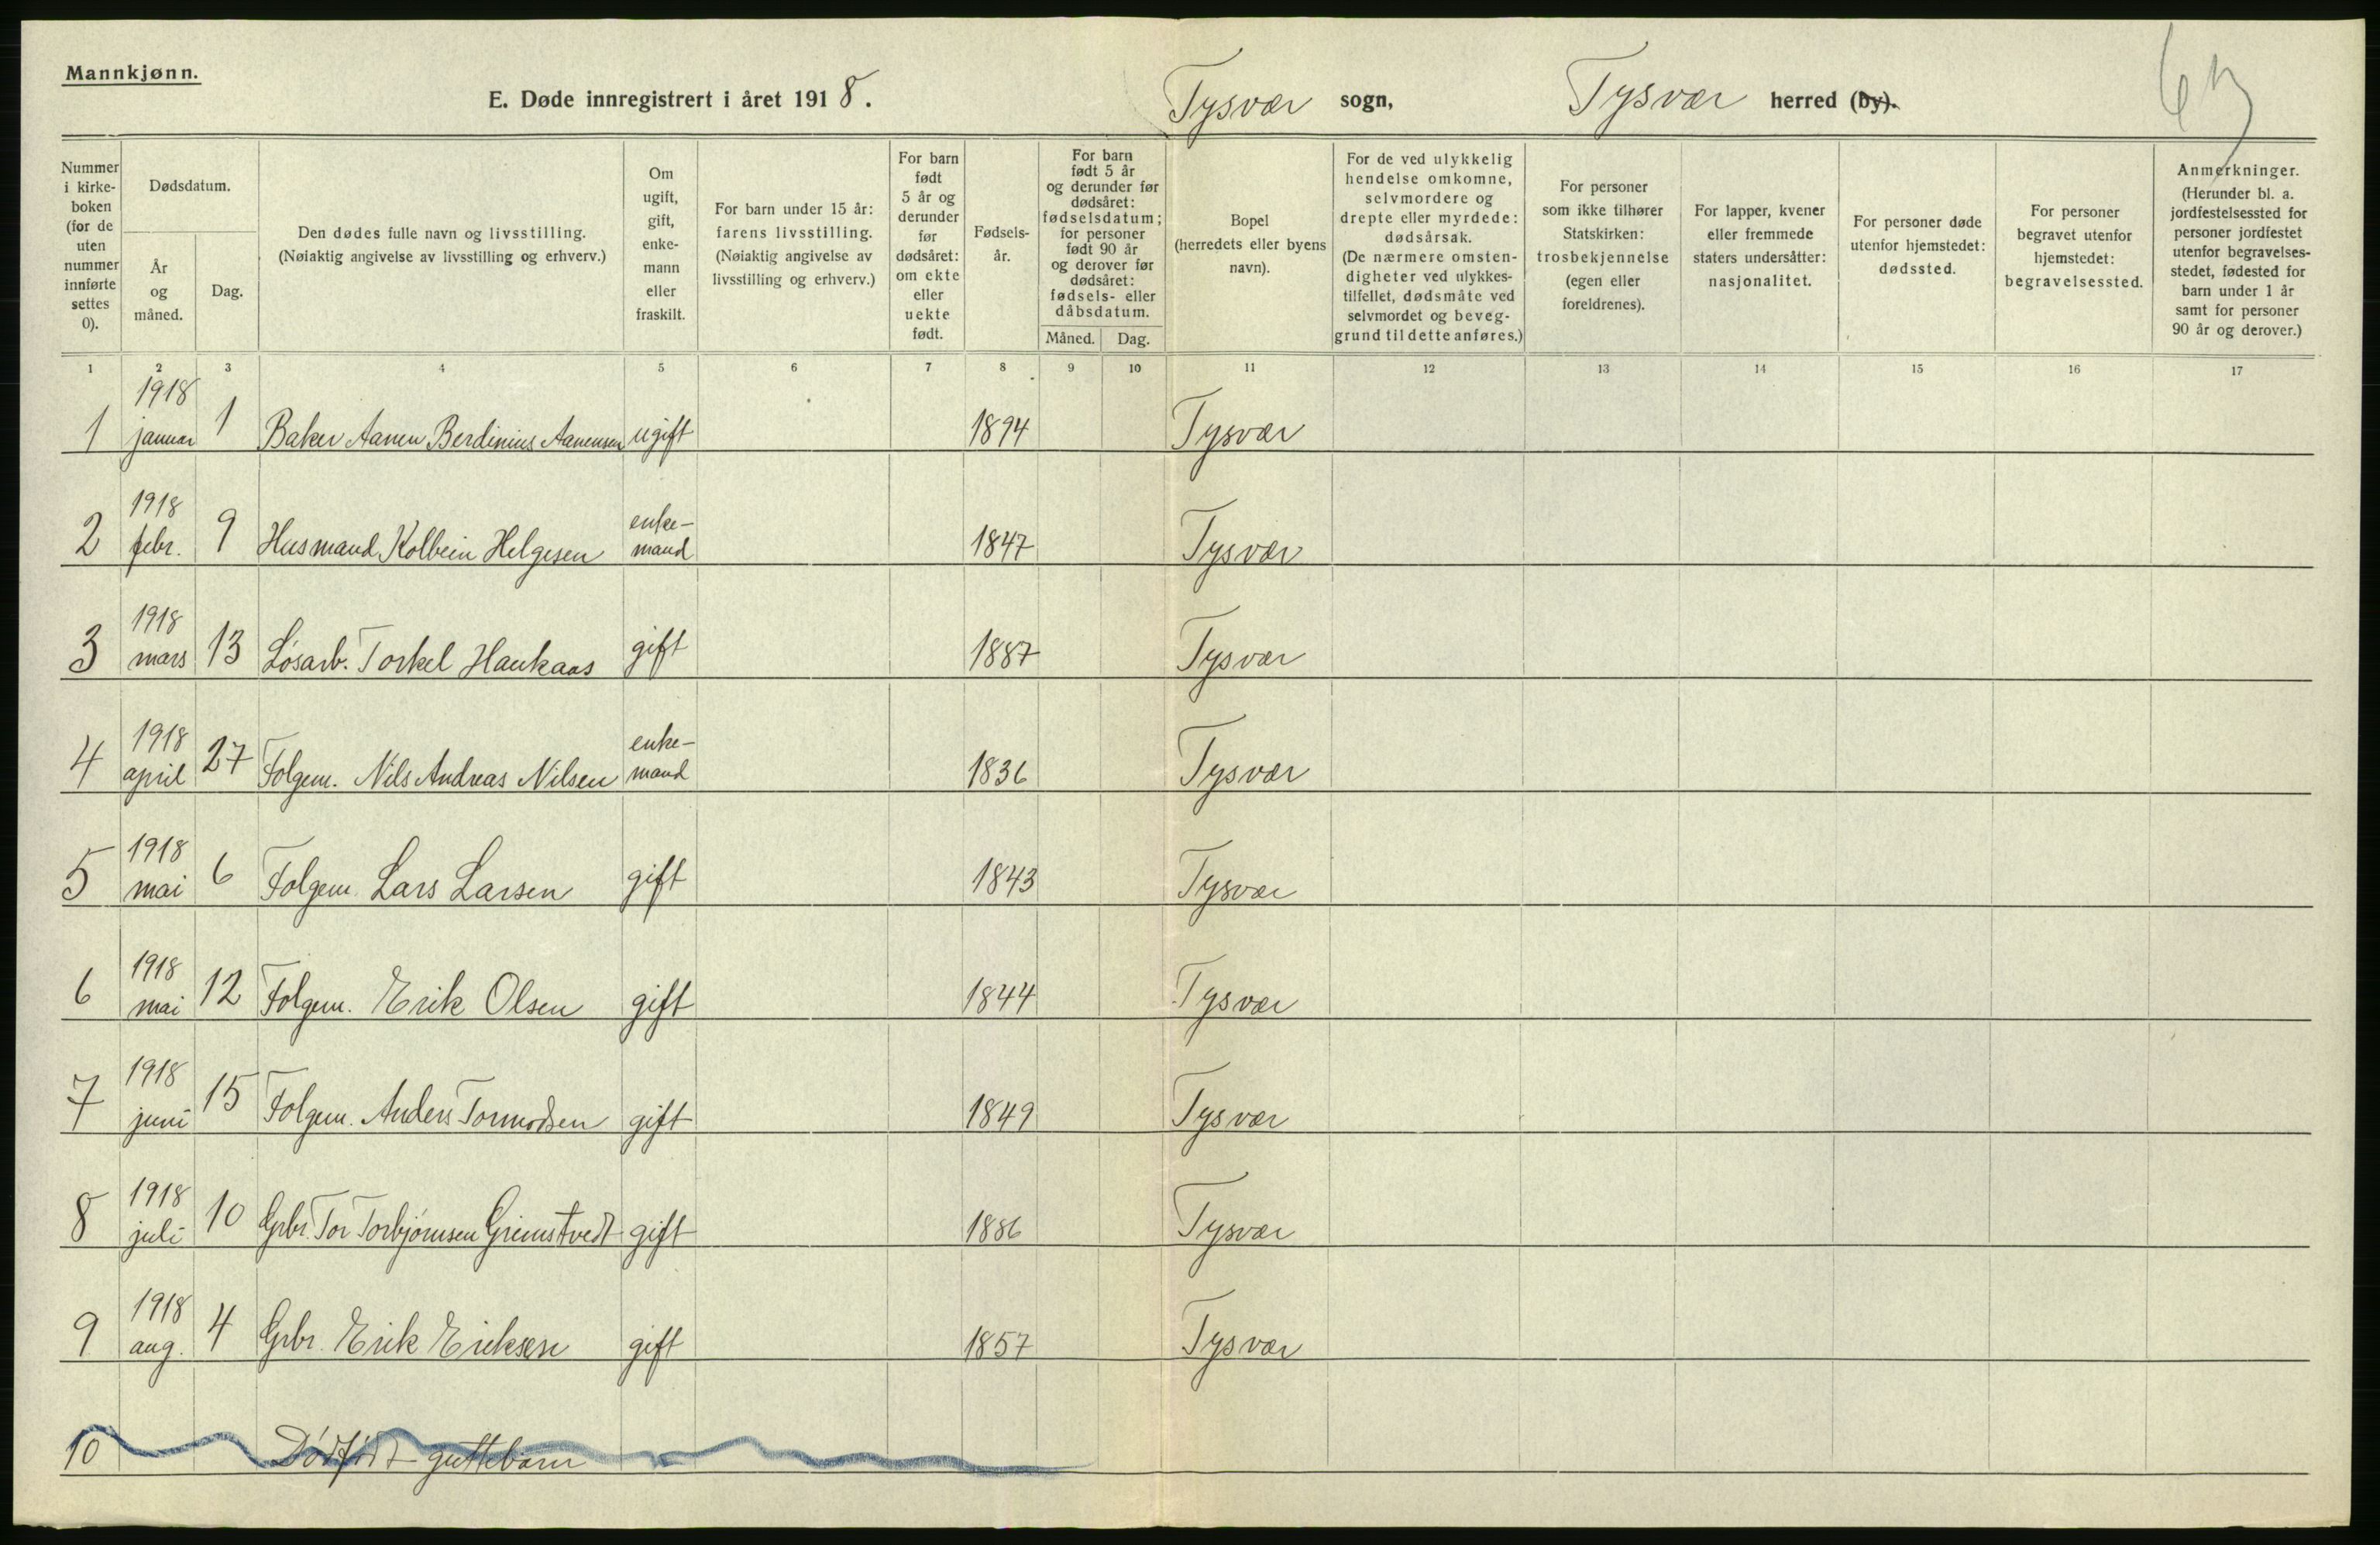 Mannkjønn.
E. Døde innregistrert i året 1918. Tysvær sogn, Tysvær herred (by).
Nummer i kirke-boken (for de uten nummer innførte settes 0).
Dødsdatum.
År og måned.
Dag.
Den dødes fulle navn og livsstilling.
(Nøiaktig angivelse av livsstilling og erhverv.)
Om ugift, gift, enke-mann eller fraskilt.
For barn under 15 år: farens livsstilling.
(Nøiaktig angivelse av livsstilling og erhverv.)
For barn født 5 år og derunder før dødsåret: om ekte eller uekte født.
Fødsels-år.
For barn født 5 år og derunder før dødsåret: fødselsdatum; for personer født 90 år og derover før dødsåret: fødsels- eller dåbsdatum.
Måned. Dag.
Bopel (herredets eller byens navn).
For de ved ulykkelig hendelse omkomne, selvmordere og drepte eller myrdede: dødsårsak.
(De nærmere omsten-digheter ved ulykkes-tilfellet, dødsmåte ved selvmordet og beveg-grund til dette anføres.)
For personer som ikke tilhører Statskirken: trosbekjennelse (egen eller foreldrenes).
For lapper, kvener eller fremmede staters undersåtter: nasjonalitet.
For personer døde utenfor hjemstedet: dødssted.
For personer begravet utenfor hjemstedet: begravelsessted.
Anmerkninger.
(Herunder bl. a. jordfestelsessted for personer jordfestet utenfor begravelses-stedet, fødested for barn under 1 år samt for personer 90 år og derover.)
1 2 3 4 5 6 7 8 9 10 11 12 13 14 15 16 17
1 1918 januar 1 Baker Aanen Berdinius Aanensen ugift 1894 Tysvær
2 1918 febr. 9 Husmand Kolbein Helgesen enke-mand 1847 Tysvær
3 1918 mars 13 Løsarb. Torkel Haukaas gift 1887 Tysvær
4 1918 april 27 Folgem. Nils Andreas Nilsen enke-mand 1836 Tysvær
5 1918 mai 6 Folgem. Lars Larsen gift 1843 Tysvær
6 1918 mai 12 Folgem. Erik Olsen gift 1844 Tysvær
7 1918 juni 15 Folgem. Anders Tormodsen gift 1849 Tysvær
8 1918 juli 10 Grbr. Tor Torbjørnsen Grimstvedt gift 1886 Tysvær
9 1918 aug. 4 Grbr. Erik Eriksen gift 1857 Tysvær
10 Dødfødt guttebarn